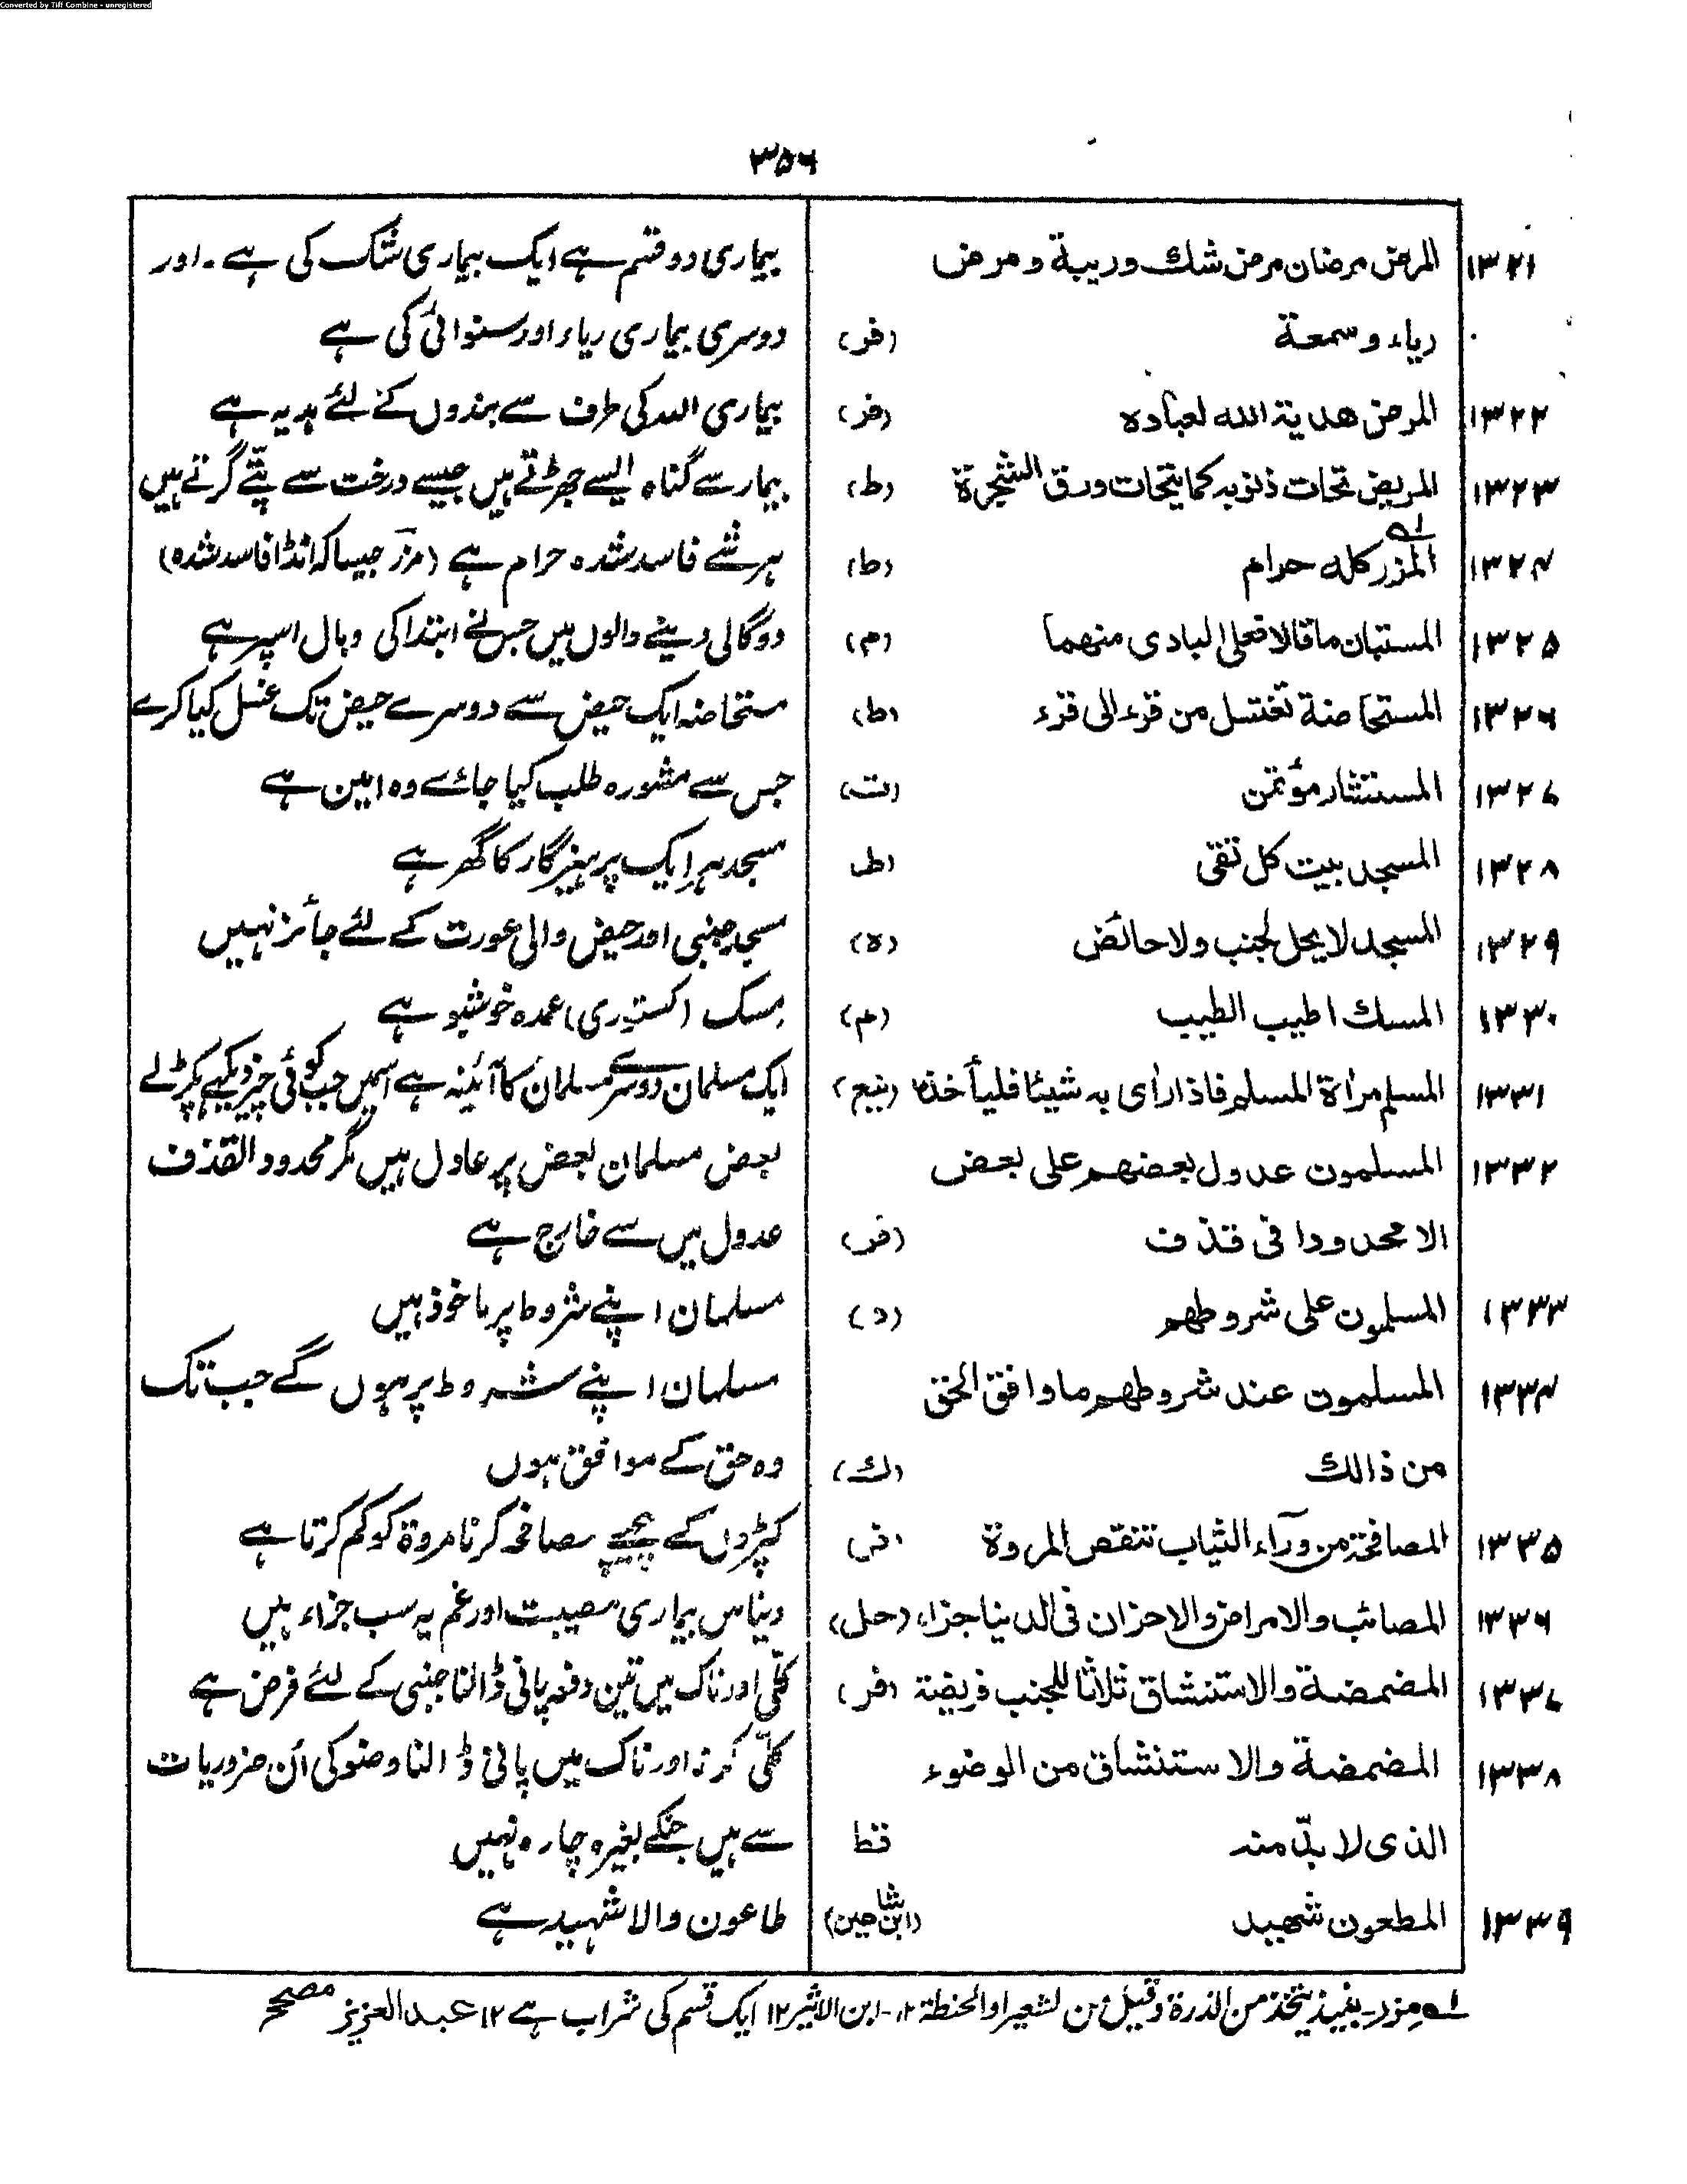 Converted by Tiff Combine - unregistered
۳۵۶
۱۳۲۱ المرض مرضان مرض شك وريبة ومرض بیماری دو قسم ہے ایک بیماری شک کی ہے۔ اور
رياء وسمعة (فر) دوسری بیماری ریاء اور سنوائی کی ہے
۱۳۲۲ المرض هدية الله لعباده (فر) بیماری اللہ کی طرف سے بندوں کے لئے ہدیہ ہے
۱۳۲۳ المريض تحات ذنوبه كما يتحات ورق الشجرة (ط) بیمار سے گناہ ایسے جھڑتے ہیں جیسے درخت سے پتّے گرتے ہیں
۱۳۲۴ المزر كله حرام (ط) ہر شے فاسد شدہ حرام ہے (مزر جیسا کہ انڈا فاسد شدہ)
۱۳۲۵ المستبان ما قالا فعلى البادى منهما (م) دو گالی دینے والوں میں جس نے ابتدا کی وبال اسپر ہے
۱۳۲۶ المستحاضة تغتسل من قرء الى قرء (ط) مستحاضہ ایک حیض سے دوسرے حیض تک غسل کیا کرے
۱۳۲۷ المستشار مؤتمن (ت) جس سے مشورہ طلب کیا جائے وہ امین ہے
۱۳۲۸ المسجد بيت كل تقى (ط) مسجد ہر ایک پرہیزگار کا گھر ہے
۱۳۲۹ المسجد لا يحل لجنب ولا حائض (ه) مسجد جنبی اور حیض والی عورت کے لئے جائز نہیں
۱۳۳۰ المسك اطيب الطيب (م) مسک (کستوری) عمدہ خوشبو ہے
۱۳۳۱ المسلم مرأة المسلم فاذا رأى به شيئا فليأخذه (بنیع) ایک مسلمان دوسرے مسلمان کا آئینہ ہے اسمیں جب کوئی چیز دیکھے پکڑ لے
۱۳۳۲ المسلمون عدول بعضهم على بعض بعض مسلمان بعض پر عادل ہیں مگر محدود القذف
الا محدودا فى قذف (فر) عدول میں سے خارج ہے
۱۳۳۳ المسلمون على شروطهم (د) مسلمان اپنے شروط پر ماخوذ ہیں
۱۳۳۴ المسلمون عند شروطهم ما وافق الحق مسلمان اپنے شروط پر ہوں گے جب تک
من ذالك (ك) وہ حق کے موافق ہوں
۱۳۳۵ المصافحة من وراء الثياب تنقص المروة کپڑوں کے پیچھے مصافحہ کرنا مروۃ کو کم کرتا ہے
۱۳۳۶ المصائب والامراض والاحزان فى الدنيا جزاء (حل) دنیا میں بیماری مصیبت اور غم یہ سب جزاء ہیں
۱۳۳۷ المضمضة والاستنشاق ثلاثا للجنب فريضة (فر) کلّی اور ناک میں تین دفعہ پانی ڈالنا جنبی کے لئے فرض ہے
۱۳۳۸ المضمضة والاستنشاق من الوضوء کلّی کرنہ اور ناک میں پانی ڈالنا وضو کی ان ضروریات
الذى لا بدّ منه قط سے ہیں جنکے بغیرہ چارہ نہیں
۱۳۳۹ المطعون شهيد (ابن شاحين) طاعون والا شہید ہے
لہ مزر۔ نبيذ يتخذ من الذرة وقيل من الشعير او الحنطة ۱۲۔ ابن الاثير ۱۲ ایک قسم کی شراب ہے ۱۲ عبد العزیز مصحح